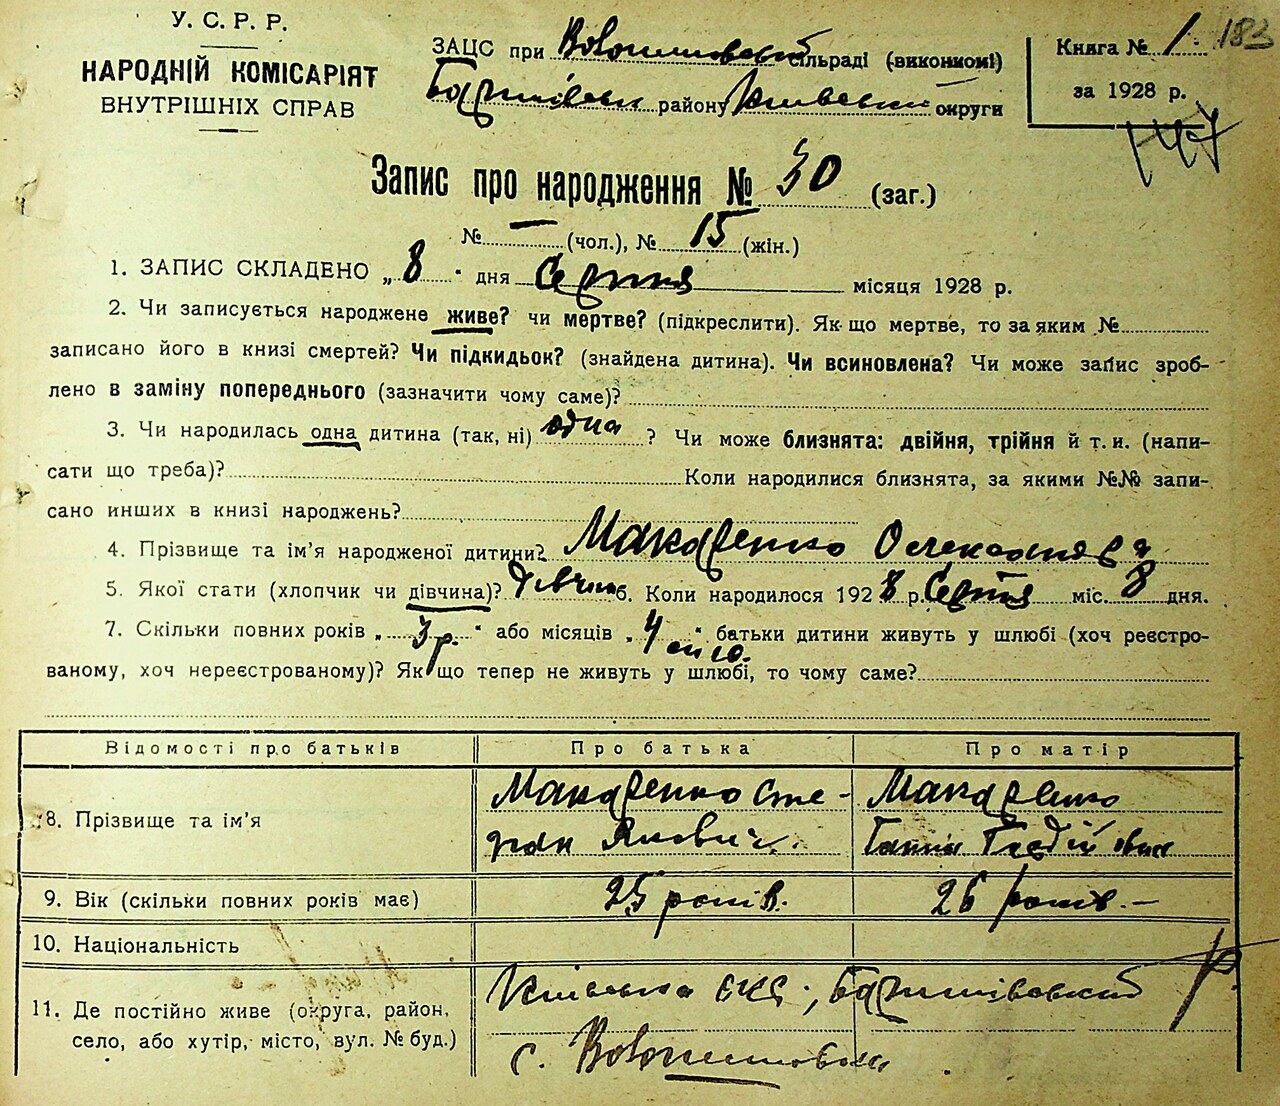 У. С. Р. Р.
НАРОДНІЙ КОМІСАРІЯТ
ВНУТРІШНІХ СПРАВ
ЗАЦС при сільраді (виконкомі)
району округи
Книга № 1. 183
за 1928 р.
147
Запис про народження № 30 (заг.)
№ — (чол.), № 15 (жін.)
1. ЗАПИС СКЛАДЕНО „8" дня Серпня місяця 1928 р.
2. Чи записується народжене живе? чи мертве? (підкреслити). Як-що мертве, то за яким №
записано його в книзі смертей? Чи підкидьок? (знайдена дитина). Чи всиновлена? Чи може запис зроб-
лено в заміну попереднього (зазначити чому саме)?
3. Чи народилась одна дитина (так, ні) одна ? Чи може близнята: двійня, трійня й т. и. (напи-
сати що треба)? Коли народилися близнята, за якими №№ запи-
сано инших в книзі народжень?
4. Прізвище та ім'я народженої дитини? Макаренко Олександра
5. Якої стати (хлопчик чи дівчина)? дівчина 6. Коли народилося 1928 р. Серпня міс. 8 дня.
7. Скільки повних років „3 р." або місяців „4 " батьки дитини живуть у шлюбі (хоч реєстро-
ваному, хоч нереєстрованому)? Як що тепер не живуть у шлюбі, то чому саме?
Відомості про батьків Про батька Про матір
8. Прізвище та ім'я Макаренко Сте- Макаренко
пан Якович. Ганна
9. Вік (скільки повних років має) 25 років. 26 років.—
10. Національність
11. Де постійно живе (округа, район,
село, або хутір, місто, вул. № буд.)
с.